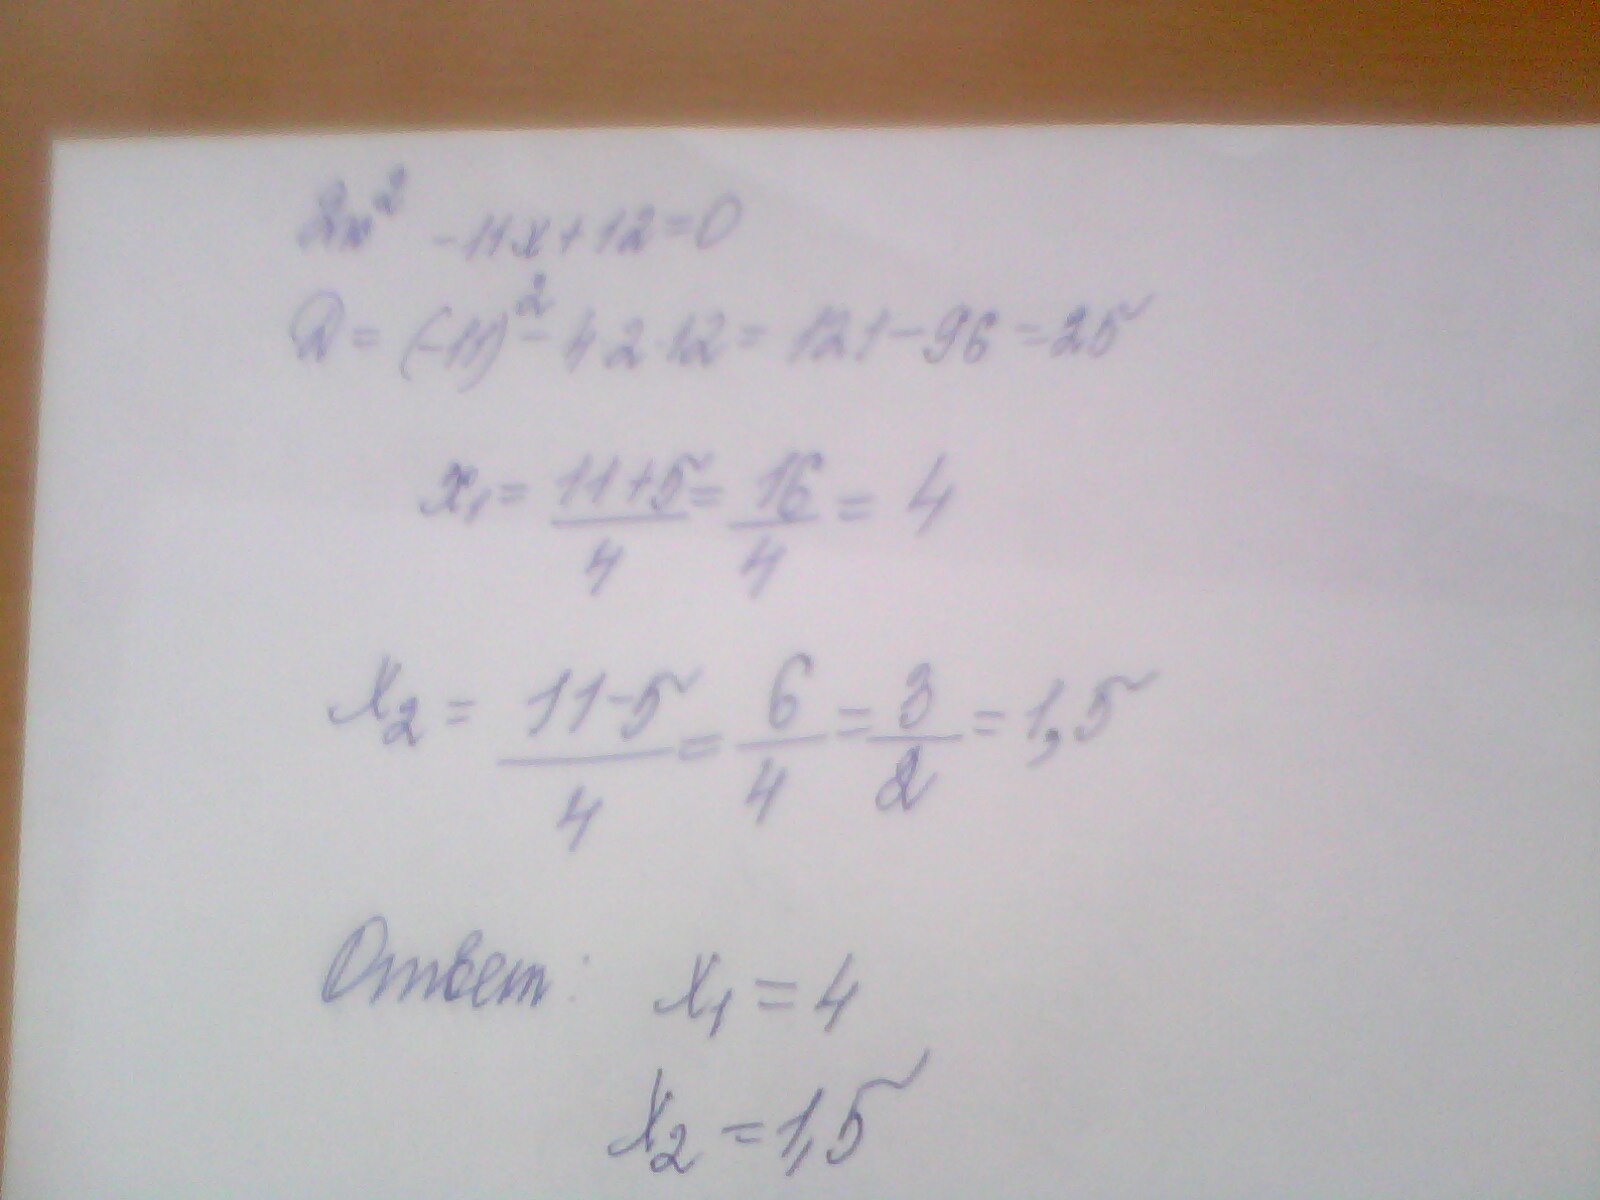 2x² -11x+12=0
D= (-11)²- 4·2·12= 121-96=25
x₁= 11+5/4 = 16/4 = 4
x₂= 11-5/4 = 6/4 = 3/2 = 1,5
Ответ: x₁=4
x₂=1,5